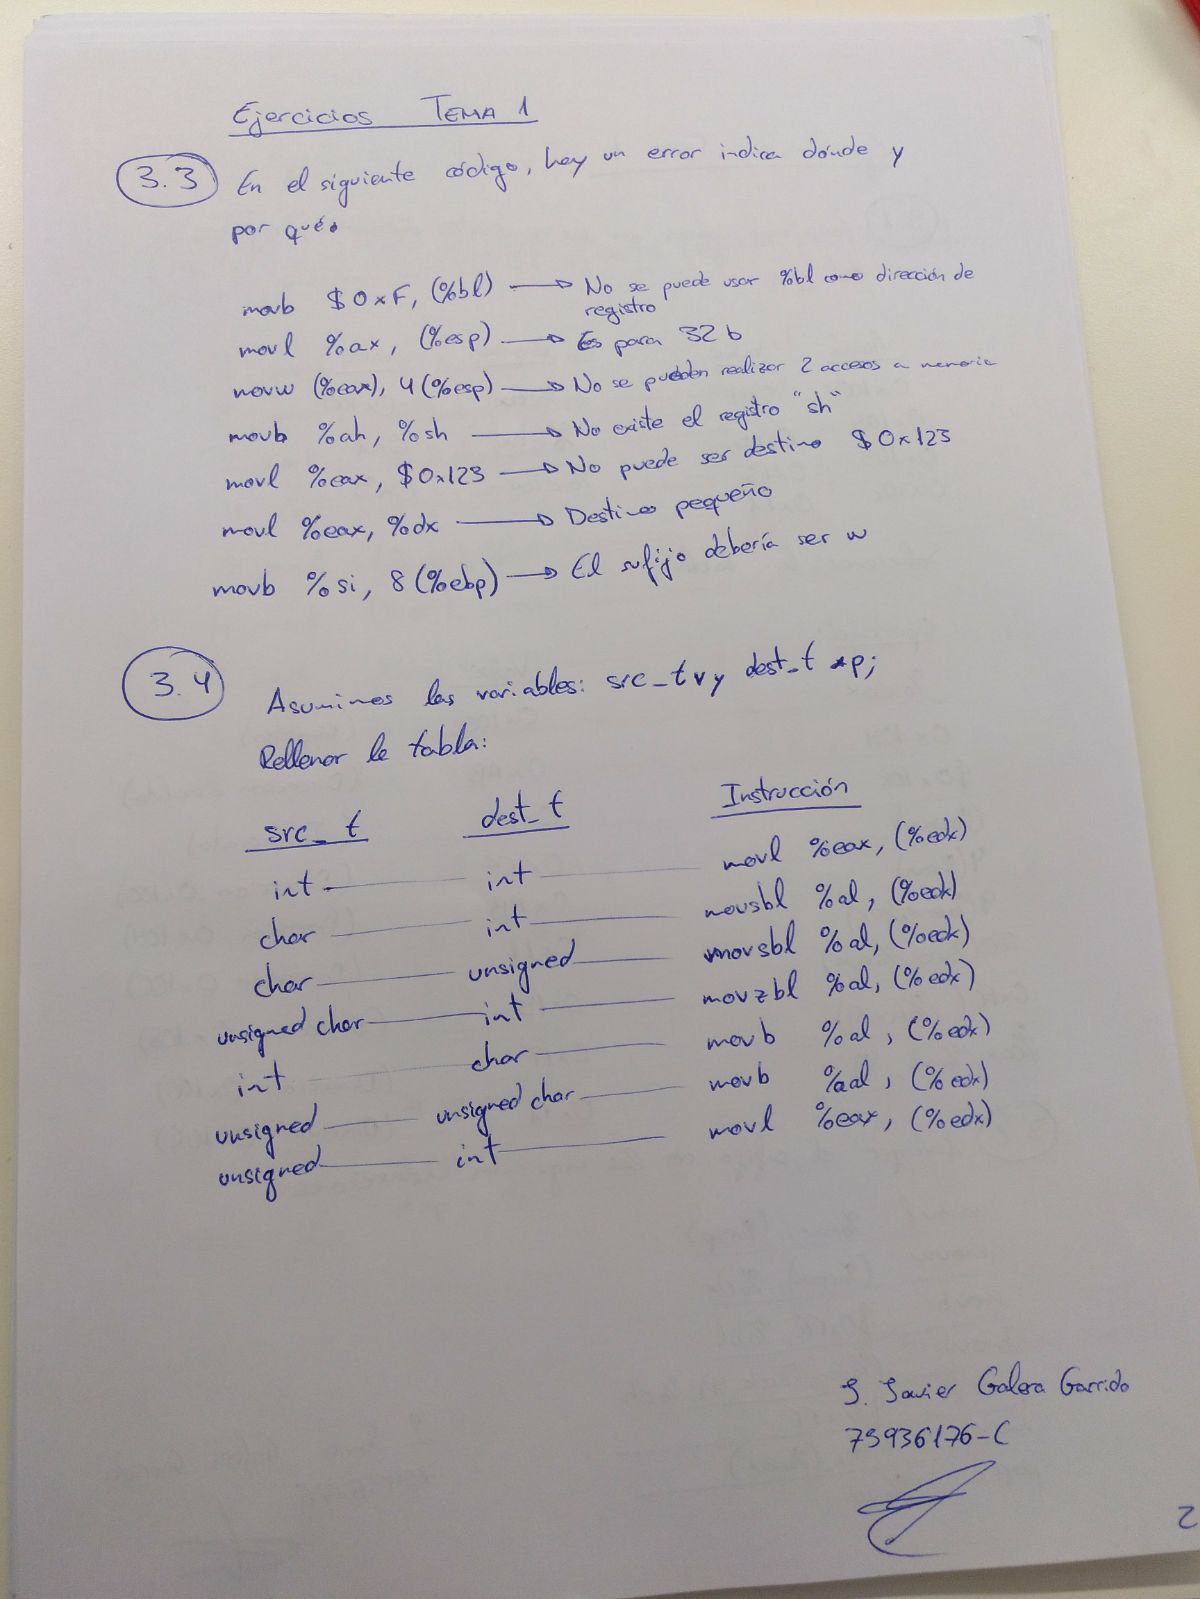 Ejercicios TEMA 1
3.3 En el siguiente código, hay un error indica dónde y
por qué.
movb $0xF, (%bl) → No se puede usar %bl como dirección de
registro
movl %ax, (%esp) → Es para 32 b
movw (%eax), 4(%esp) → No se pueden realizar 2 accesos a memoria
movb %ah, %sh → No existe el registro "sh"
movl %eax, $0x123 → No puede ser destino $0x123
movl %eax, %dx → Destino pequeño
movb %si, 8(%ebp) → El sufijo debería ser w
3.4 Asumimos las variables: src_t v y dest_t *p;
Rellenar la tabla:
src_t dest_t Instrucción
int int movl %eax, (%edx)
char int movsbl %al, (%edx)
char unsigned movsbl %al, (%edx)
unsigned char int movzbl %al, (%edx)
int char movb %al, (%edx)
unsigned unsigned char movb %al, (%edx)
unsigned int movl %eax, (%edx)
J. Javier Galera Garrido
75936176-C
2